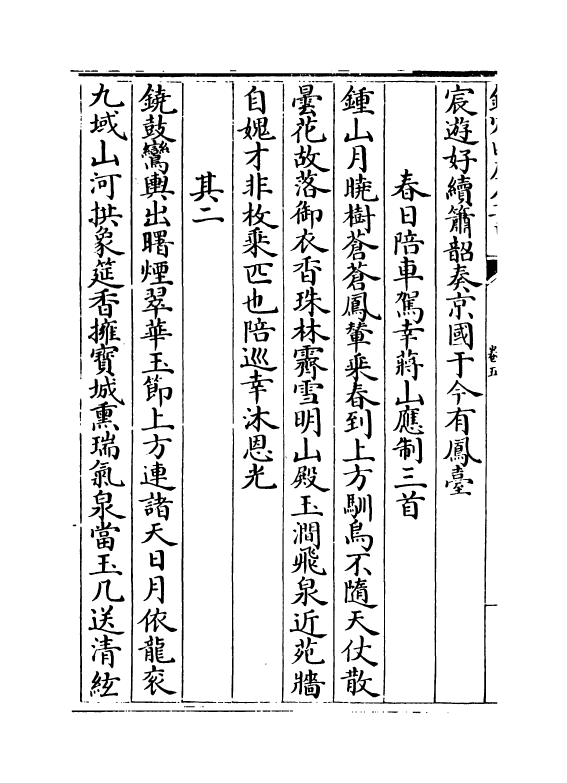 卷五
宸遊好續簫韶奏京國于今有鳳臺
春日陪車駕幸蔣山應制三首
鍾山月曉樹蒼蒼鳳輦乘春到上方馴鳥不隨天仗散
曇花故落御衣香珠林霽雪明山殿玉澗飛泉近苑牆
自媿才非枚乘匹也陪巡幸沐恩光
其二
鐃鼓鸞輿出曙煙翠華玉節上方連諸天日月依龍衮
九域山河拱象筵香擁寶城熏瑞氣泉當玉几送清絃